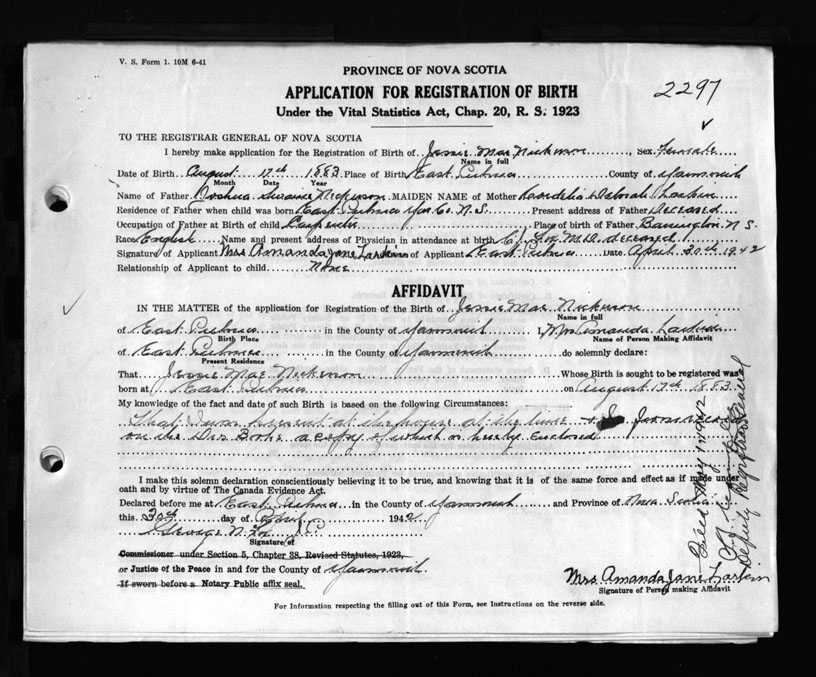 V. S. Form 1. 10M 6-41
PROVINCE OF NOVA SCOTIA
APPLICATION FOR REGISTRATION OF BIRTH
2297
Under the Vital Statistics Act, Chap. 20, R. S. 1923
TO THE REGISTRAR GENERAL OF NOVA SCOTIA
I hereby make application for the Registration of Birth of Jessie Mae Nickerson Sex Female
Name in full
Date of Birth August 17th 1883 Place of Birth East Pubnico County of Yarmouth
Month Date Year
Name of Father Joshua Nickerson MAIDEN NAME of Mother Deborah Larkin
Residence of Father when child was born East Pubnico Yar Co. N.S. Present address of Father Deceased
Occupation of Father at Birth of child Carpenter Place of birth of Father Barrington N S.
Race English Name and present address of Physician in attendance at birth Fox M.D. deceased
Signature of Applicant Mrs Amanda Jane Larkin of Applicant East Pubnico Date April 30th 1942
Relationship of Applicant to child None
AFFIDAVIT
IN THE MATTER of the application for Registration of the Birth of Jessie Mae Nickerson
Name in full
of East Pubnico in the County of Yarmouth I, Mrs Amanda Larkin
Birth Place Name of Person Making Affidavit
of East Pubnico in the County of Yarmouth do solemnly declare:
Present Residence
That Jessie Mae Nickerson Whose Birth is sought to be registered was
born at East Pubnico on August 17th 1883
My knowledge of the fact and date of such Birth is based on the following Circumstances:
That I was present at the house at the time
on the Drs Books a copy of which is hereby enclosed
I make this solemn declaration conscientiously believing it to be true, and knowing that it is of the same force and effect as if made under
oath and by virtue of The Canada Evidence Act.
Declared before me at East Pubnico in the County of Yarmouth and Province of Nova Scotia
this 30th day of April 1942
George N. Fox J.P.
Signature of
Commissioner under Section 5, Chapter 38, Revised Statutes, 1923,
or Justice of the Peace in and for the County of Yarmouth.
If sworn before a Notary Public affix seal.
Mrs. Amanda Jane Larkin
Signature of Person making Affidavit
For Information respecting the filling out of this Form, see Instructions on the reverse side.
Filed May 1 1942
Deputy Registrar General